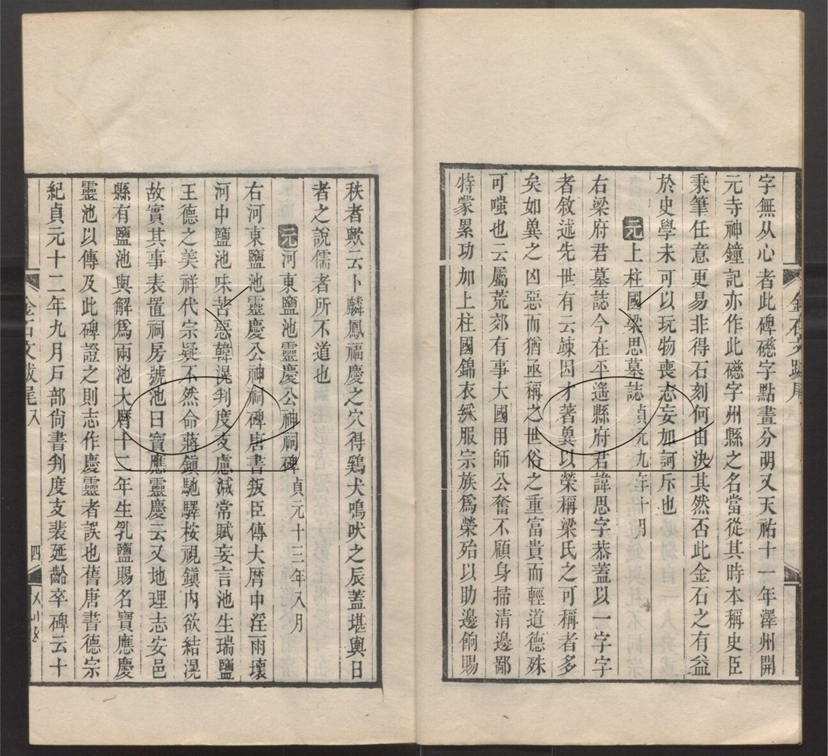 字無从心者此碑礠字點畫分明又天祐十一年澤州開
元寺神鐘記亦作此礠字州縣之名當從其時本稱史臣
秉筆任意更易非得石刻何由決其然否此金石之有益
於史學未可以玩物喪志妄加訶斥也
元上柱國梁思墓誌貞元九年十月
右梁府君墓誌今在平遙縣府君諱思字恭蓋以一字字
者敘述先世有云竦因才著兾以榮稱梁氏之可稱者多
矣如兾之凶惡而猶亟稱之世俗之重富貴而輕道德殊
可嗤也云屬荒郊有事大國用師公奮不顧身掃清邊鄙
特蒙累功加上柱國錦衣繁服宗族為榮殆以助邊餉賜
秩者歟云卜麟鳳福慶之穴得鷄犬鳴吠之辰蓋堪輿日
者之說儒者所不道也
元河東鹽池靈慶公神祠碑貞元十三年八月
右河東鹽池靈慶公神祠碑唐書叛臣傳大曆中淫雨壞
河中鹽池味苦惡韓滉判度支慮減常賦妄言池生瑞鹽
王德之美祥代宗疑不然命蔣鎮馳驛按視鎮內欲結滉
故實其事表置祠房號池曰寶應靈慶云又地理志安邑
縣有鹽池與解為兩池大曆十二年生乳鹽賜名寶應慶
靈池以傳及此碑證之則志作慶靈者誤也舊唐書德宗
紀貞元十二年九月戶部尚書判度支裴延齡卒碑云十
金石文跋尾八
四